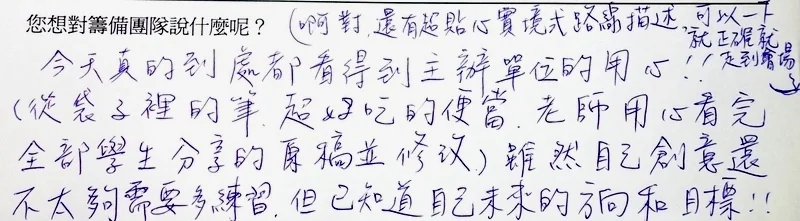 您想對籌備團隊說什麼呢？(啊對,還有超貼心實境式路線描述,可以一下就正確就走到會場)
今天真的到處都看得到主辦單位的用心!!
(從袋子裡的筆,超好吃的便當,老師用心看完
全部學生分享的原稿並修改,)雖然自己創意還
不太夠需要多練習,但已知道自己未來的方向和目標!!